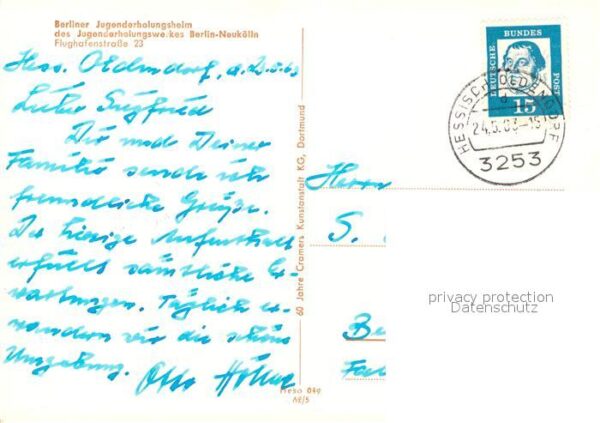 Berliner Jugenderholungsheim
des Jugenderholungswerkes Berlin-Neukölln
Flughafenstraße 23
Hess. Oldendorf, d. 23.5.63
Lieber Siegfried
Dir und Deiner
Familie sende ich
freundliche Grüße.
Der hiesige Aufenthalt
erfüllt sämtliche Er-
wartungen. Täglich er-
wandern wir die schöne
Umgebung.
Otto
60 Jahre Cramers Kunstanstalt KG, Dortmund
Heso 049
DEUTSCHE BUNDESPOST
15
HESSISCH OLDENDORF
24.5.63-15
3253
Herrn
S.
privacy protection
Datenschutz